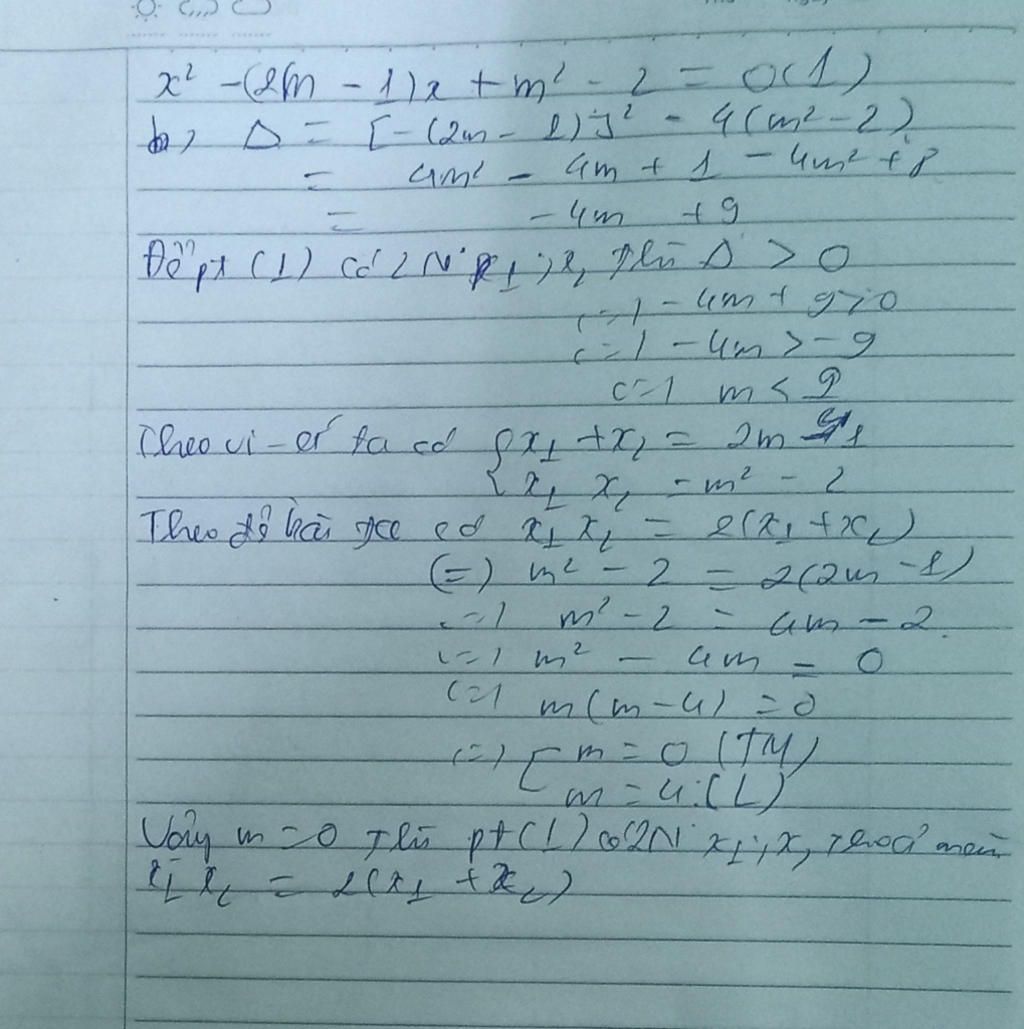 x² - (2m - 1)x + m² - 2 = 0 (1)
b, Δ = [-(2m - 1)]² - 4(m² - 2)
= 4m² - 4m + 1 - 4m² + 8
= -4m + 9
Để pt (1) có 2 N° x₁; x₂ thì Δ > 0
<=> -4m + 9 > 0
<=> -4m > -9
<=> m < 9/4
Theo vi-ét ta có { x₁ + x₂ = 2m - 1
x₁ x₂ = m² - 2
Theo đề bài ta có x₁ x₂ = 2(x₁ + x₂)
<=> m² - 2 = 2(2m - 1)
<=> m² - 2 = 4m - 2
<=> m² - 4m = 0
<=> m(m - 4) = 0
<=> [ m = 0 (TM)
m = 4 (L)
Vậy m = 0 thì pt (1) có 2N° x₁; x₂ thoả mãn
x₁ x₂ = 2(x₁ + x₂)